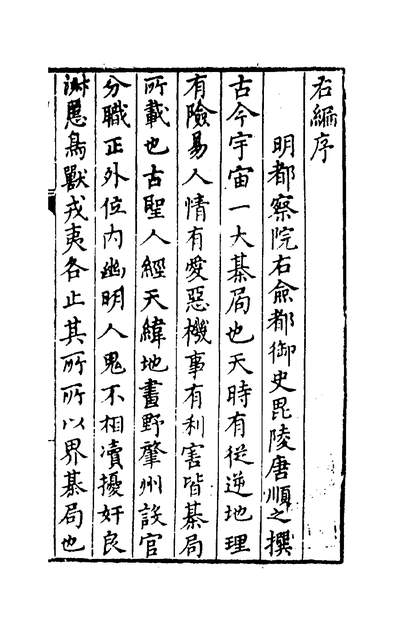 右編序
明都察院右僉都御史毘陵唐順之撰
古今宇宙一大棊局也天時有從逆地理
有險易人情有愛惡機事有利害皆棊局
所載也古聖人經天緯地畫野肇州設官
分職正外位内幽明人鬼不相瀆擾奸良
淑慝鳥獸戎夷各止其所所以界棊局也